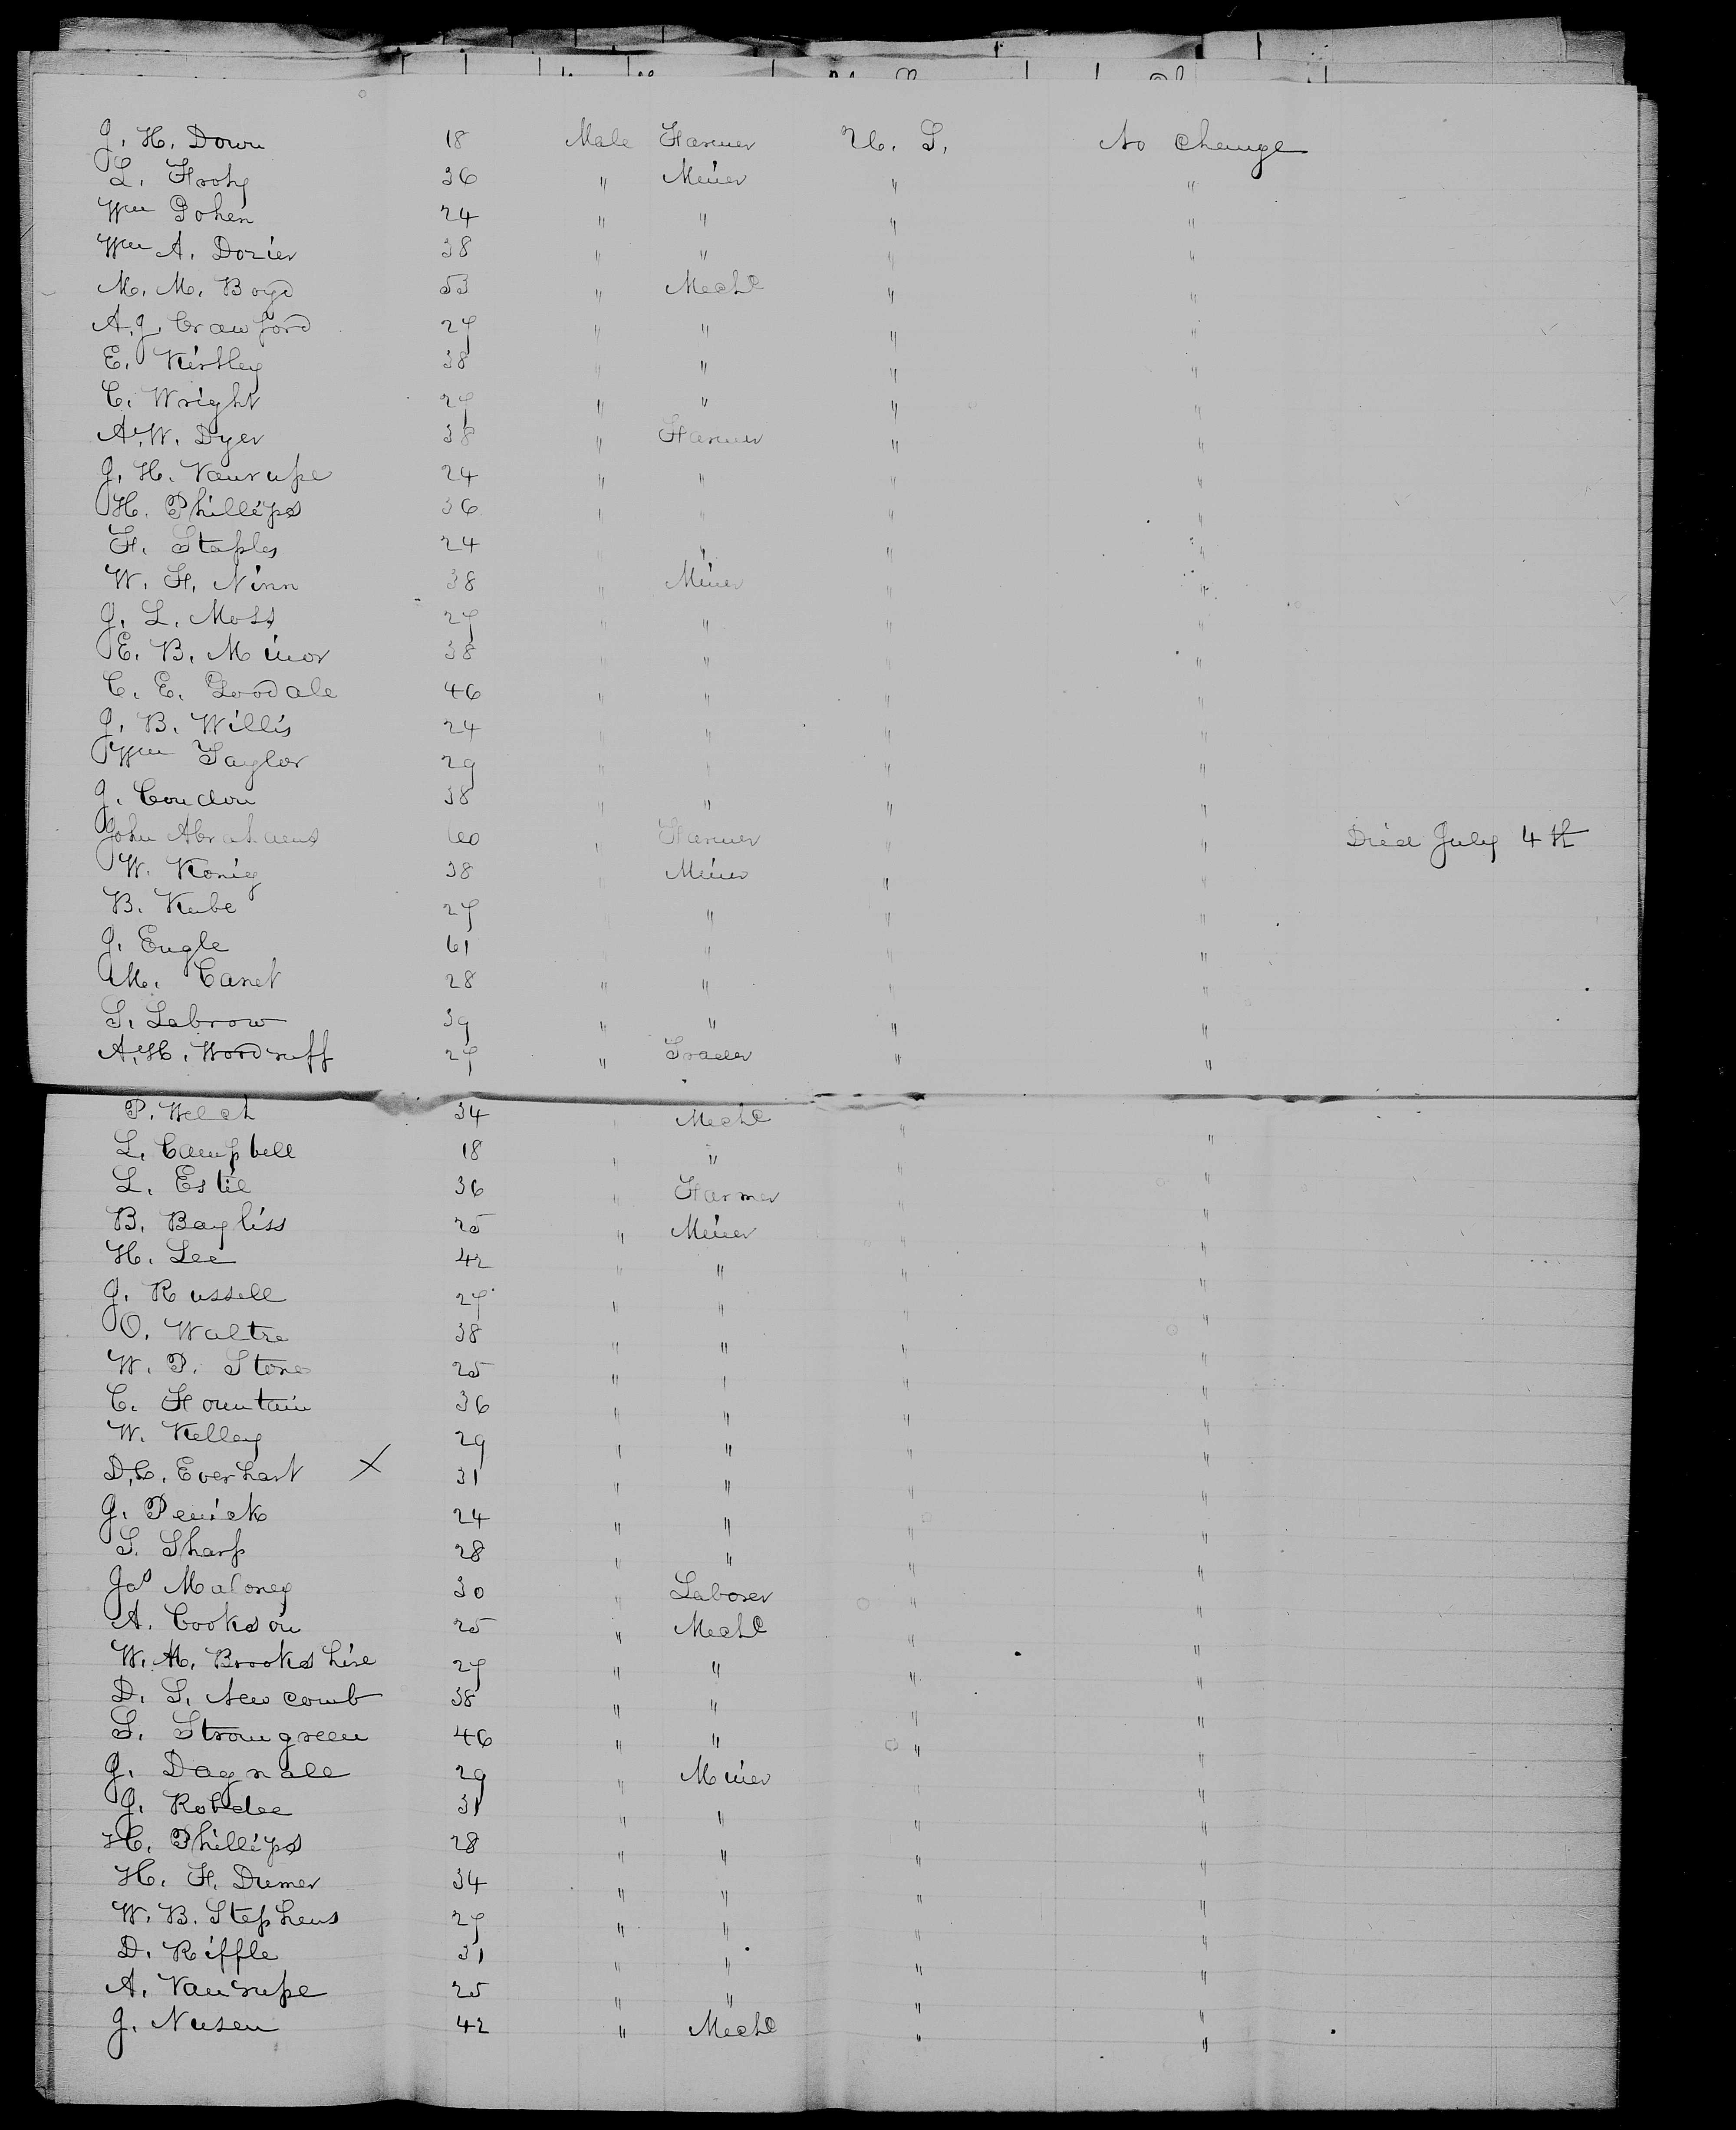 J. H. Down 18 Male Farmer U. S. No change
L. Frohy 36 " Miner " "
Wm Pohen 24 " " " "
Wm A. Dozier 38 " " " "
M. M. Boyd 53 " Mechc " "
A. J. Crawford 27 " " " "
E. Kirtley 38 " " " "
C. Wright 27 " " " "
A. W. Dyer 38 " Farmer " "
J. H. Vanrupe 24 " " " "
H. Phillips 36 " " " "
F. Staples 24 " " " "
W. F. Ninn 38 " Miner " "
J. L. Moss 27 " " " "
E. B. Minor 38 " " " "
C. E. Goodale 46 " " " "
J. B. Willis 24 " " " "
Wm Taylor 29 " " " "
J. Condon 38 " " " "
John Abrahams 60 " Farmer " " Died July 4th
W. Konig 38 " Miner " "
B. Kube 27 " " " "
J. Engle 61 " " " "
M. Canet 28 " " " "
S. Labrow 39 " " " "
A. H. Woodruff 27 " Trader " "
P. Welch 34 " Mechc " "
L. Campbell 18 " " " "
L. Estie 36 " Farmer " "
B. Bayliss 25 " Miner " "
H. Lee 42 " " " "
J. Russell 27 " " " "
O. Waltre 38 " " " "
W. P. Stone 25 " " " "
C. Fountain 36 " " " "
W. Kelley 29 " " " "
D. C. Everhart X 31 " " " "
J. Penick 24 " " " "
S. Sharp 28 " " " "
Jas Maloney 30 " Laborer " "
A. Cookson 25 " Mechc " "
W. M. Brookshire 27 " " " "
D. S. Newcomb 38 " " " "
S. Stromgreen 46 " " " "
J. Dagnall 29 " Miner " "
J. Robdee 31 " " " "
H. Phillips 28 " " " "
H. F. Dumer 34 " " " "
W. B. Stephens 27 " " " "
D. Riffle 31 " " " "
A. Vanrupe 25 " " " "
J. Nusen 42 " Mechc " "